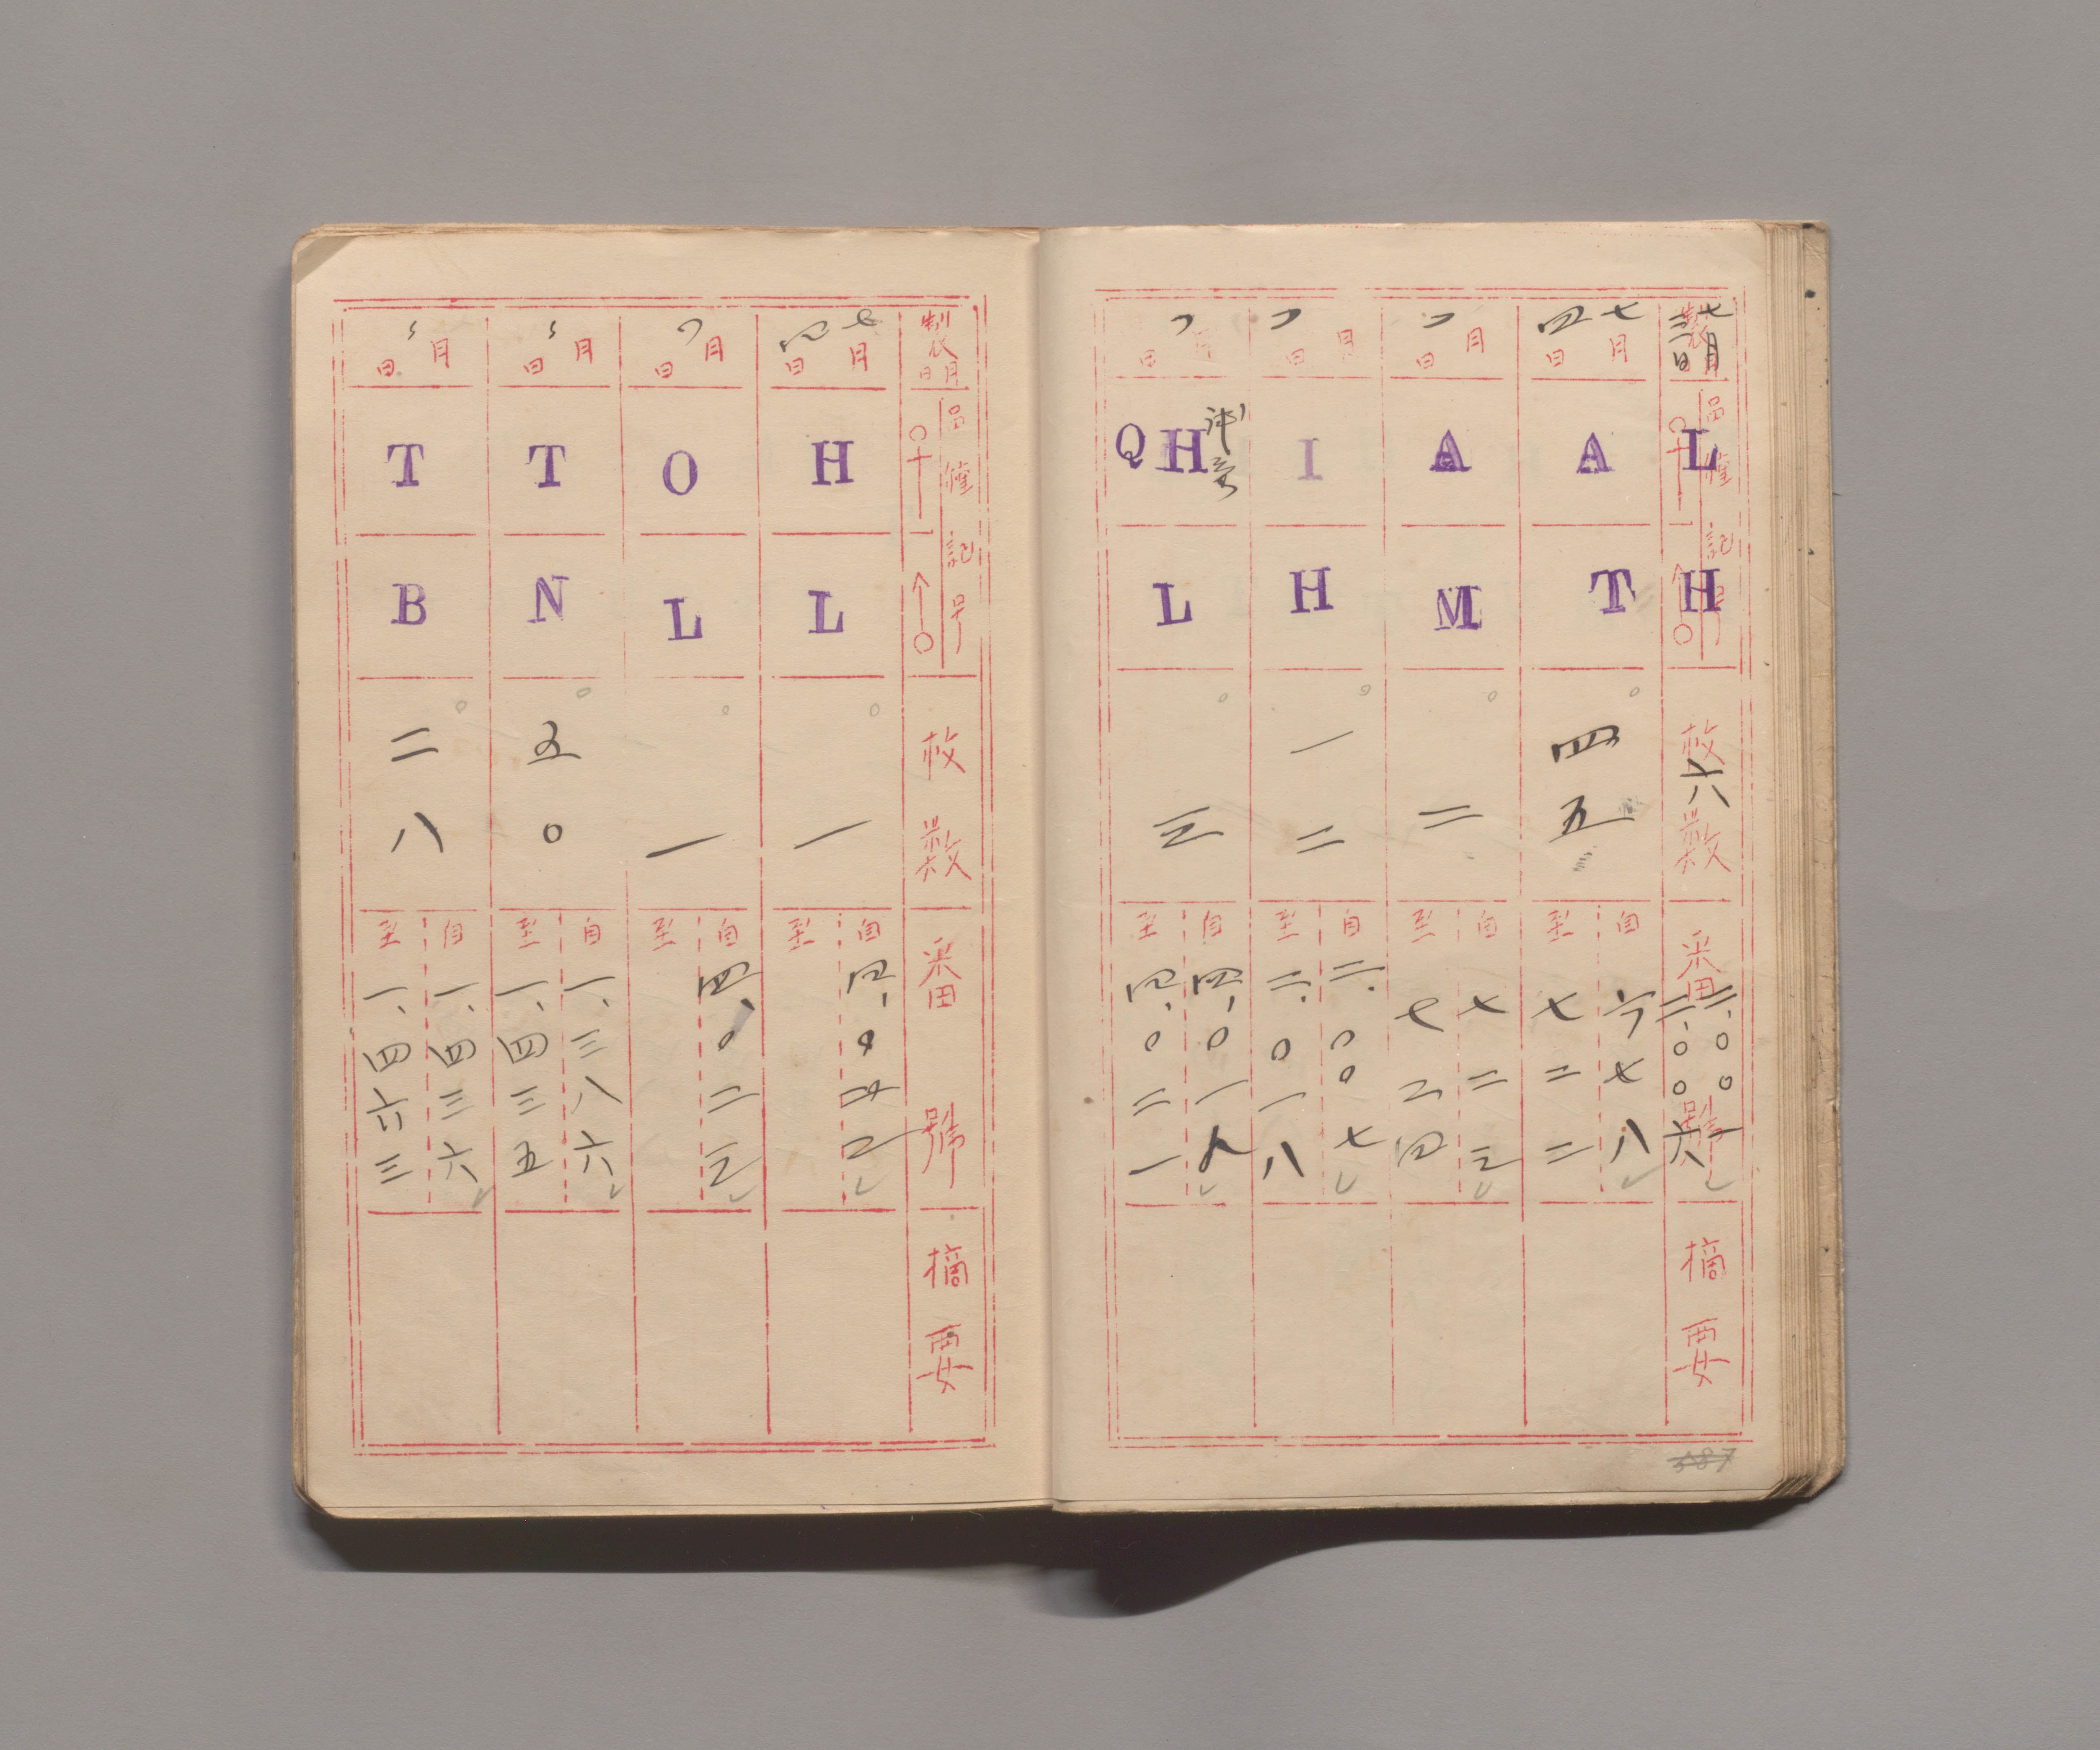 製月日 區種記号 枚数 番號 摘要
七月 L H 六 自二,〇〇一 至二,〇〇六
七月四日 A T 四五 自六七八 至七二二
〃月日 A M 二 自七二三 至七二四
〃月日 I H 一二 自二,〇〇七 至二,〇一八
〃月日 QH L 三 自四,〇一九 至四,〇二一
587
製月日 區種記号 枚数 番號 摘要
七月四日 H L 一 自四,〇二二 至
〃月日 O L 一 自四,〇二三 至
〃月日 T N 五〇 自一,三八六 至一,四三五
〃月日 T B 二八 自一,四三六 至一,四六三